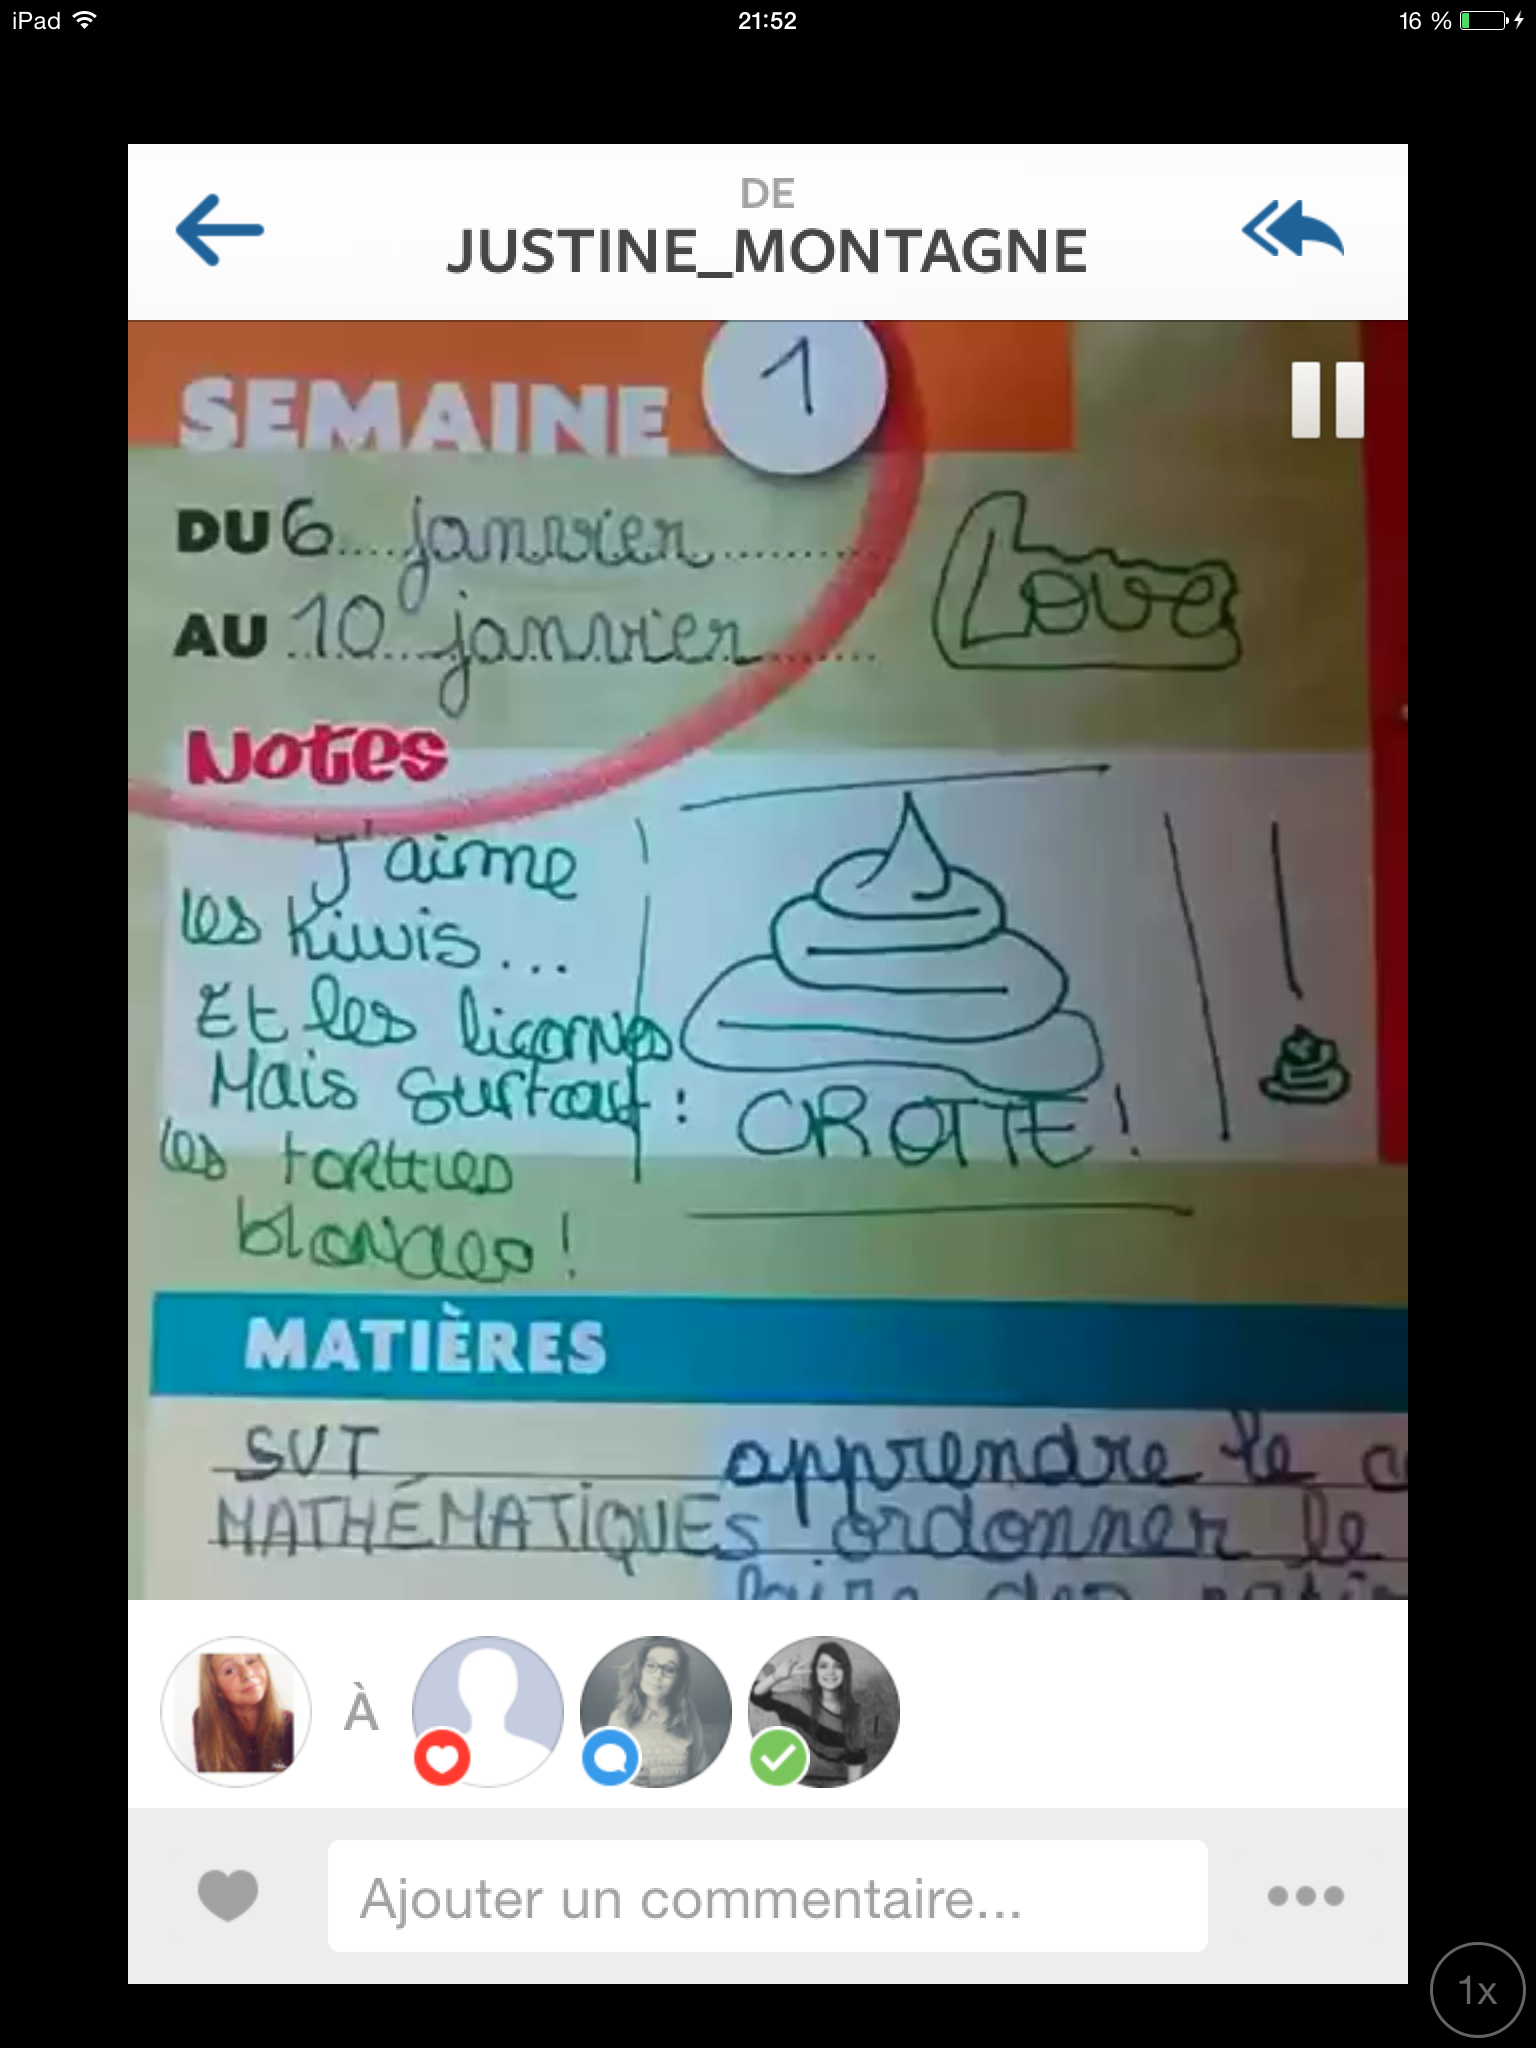 iPad 21:52 16 %
DE
JUSTINE_MONTAGNE
SEMAINE 1
DU 6 janvier
AU 10 janvier
Love
Notes
J'aime
les kiwis...
Et les licornes
Mais surtout :
les tortues
blondes !
CROTTE !
MATIÈRES
SVT apprendre le
MATHÉMATIQUES ordonner le
faire des
À
Ajouter un commentaire...
1x